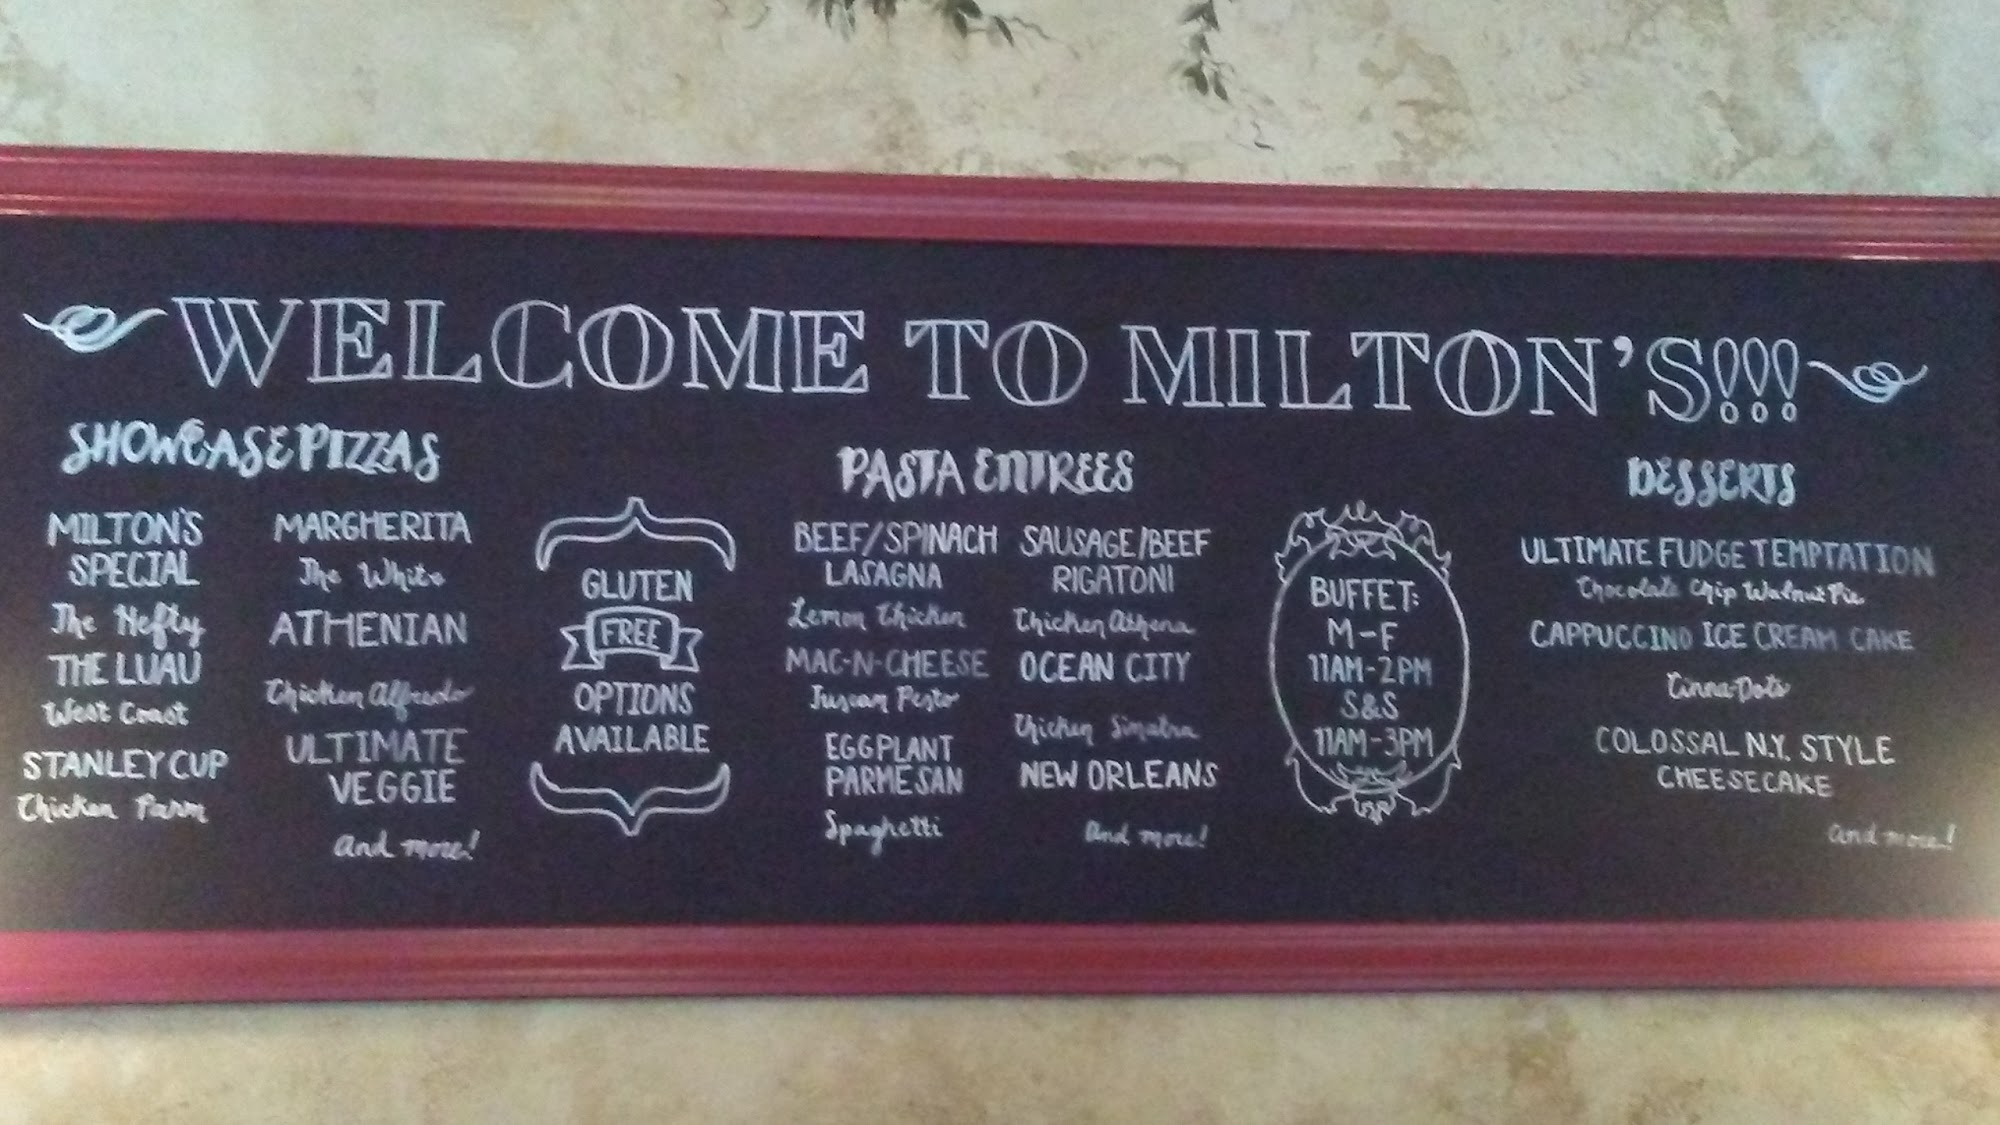 WELCOME TO MILTON'S!!!
SHOWCASE PIZZAS
MILTON'S
SPECIAL
The Hefty
THE LUAU
West Coast
STANLEY CUP
Chicken Parm
MARGHERITA
The White
ATHENIAN
Chicken Alfredo
ULTIMATE
VEGGIE
And more!
GLUTEN
FREE
OPTIONS
AVAILABLE
PASTA ENTREES
BEEF/SPINACH
LASAGNA
Lemon Chicken
MAC-N-CHEESE
Tuscan Pesto
EGGPLANT
PARMESAN
Spaghetti
SAUSAGE/BEEF
RIGATONI
Chicken Athena
OCEAN CITY
Chicken Sinatra
NEW ORLEANS
And more!
BUFFET:
M-F
11AM-2PM
S&S
11AM-3PM
DESSERTS
ULTIMATE FUDGE TEMPTATION
Chocolate Chip Walnut Pie
CAPPUCCINO ICE CREAM CAKE
Cinna-Dots
COLOSSAL N.Y. STYLE
CHEESECAKE
And more!